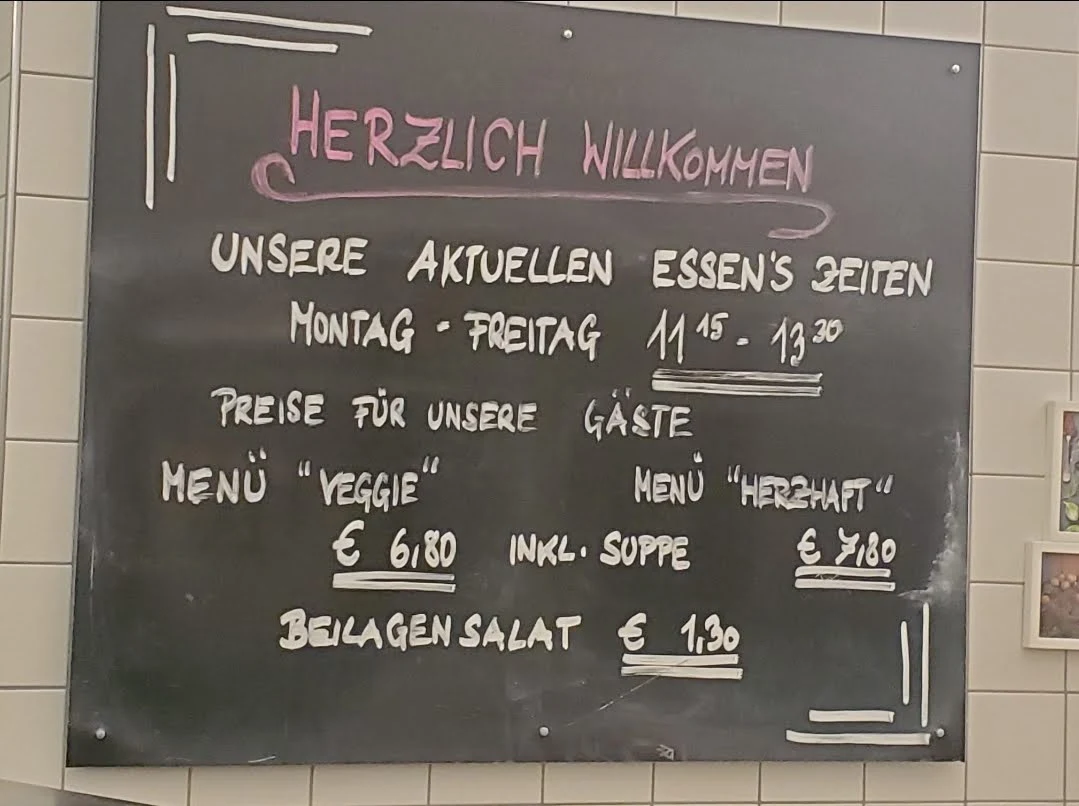 HERZLICH WILLKOMMEN
UNSERE AKTUELLEN ESSEN'S ZEITEN
MONTAG - FREITAG 11 15 - 13 30
PREISE FÜR UNSERE GÄSTE
MENÜ "VEGGIE" MENÜ "HERZHAFT"
€ 6,80 INKL. SUPPE € 7,80
BEILAGEN SALAT € 1,30